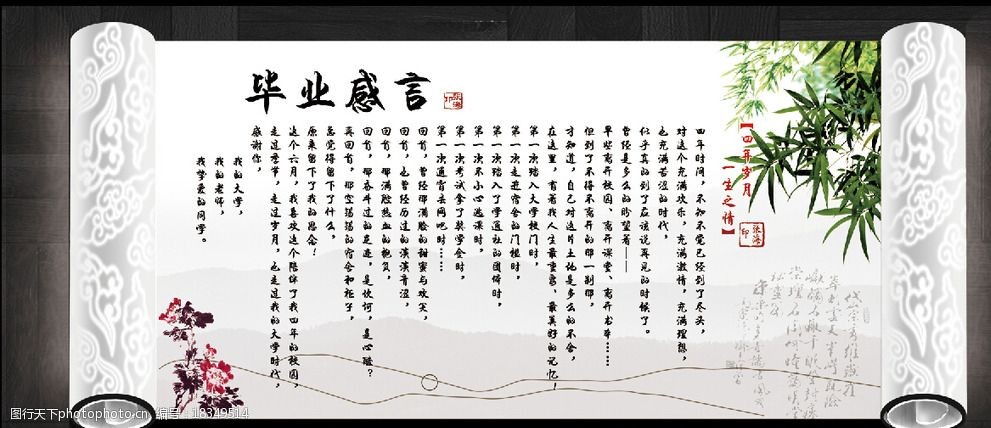 毕业感言
张海印
【四年岁月
一生之情】
张海印
四年时间，不知不觉已经到了尽头，
对这个充满欢乐，充满激情，充满理想，
也充满苦涩的时代，
似乎真的到了应该说再见的时候了。
曾经是多么的盼望着——
早些离开校园、离开课堂、离开书本……
但到了不得不离开的那一刹那，
才知道，自己对这片土地是多么的不舍，
在这里，有着我人生最重要、最美好的记忆！
第一次踏入大学校门时，
第一次走进宿舍的门槛时，
第一次踏入了学通社的团体时，
第一次不小心逃课时，
第一次考试拿了奖学金时，
第一次通宵去网吧时……
回首，曾经那满脸的甜蜜与欢笑，
回首，也曾经历过的淡淡青涩，
回首，那满腔热血的抱负，
回首，那奋斗过的足迹，是坎坷，是心酸？
再回首，那空荡荡的宿舍和柜子，
总觉得留下了什么，
原来留下了我的思念？
这个六月，我喜欢这个陪伴了我四年的校园，
走过季节，走过岁月，也走过我的大学时代，
感谢你，
我的大学，
我的老师，
我挚爱的同学。
图行天下photophoto.cn 编号：18349514